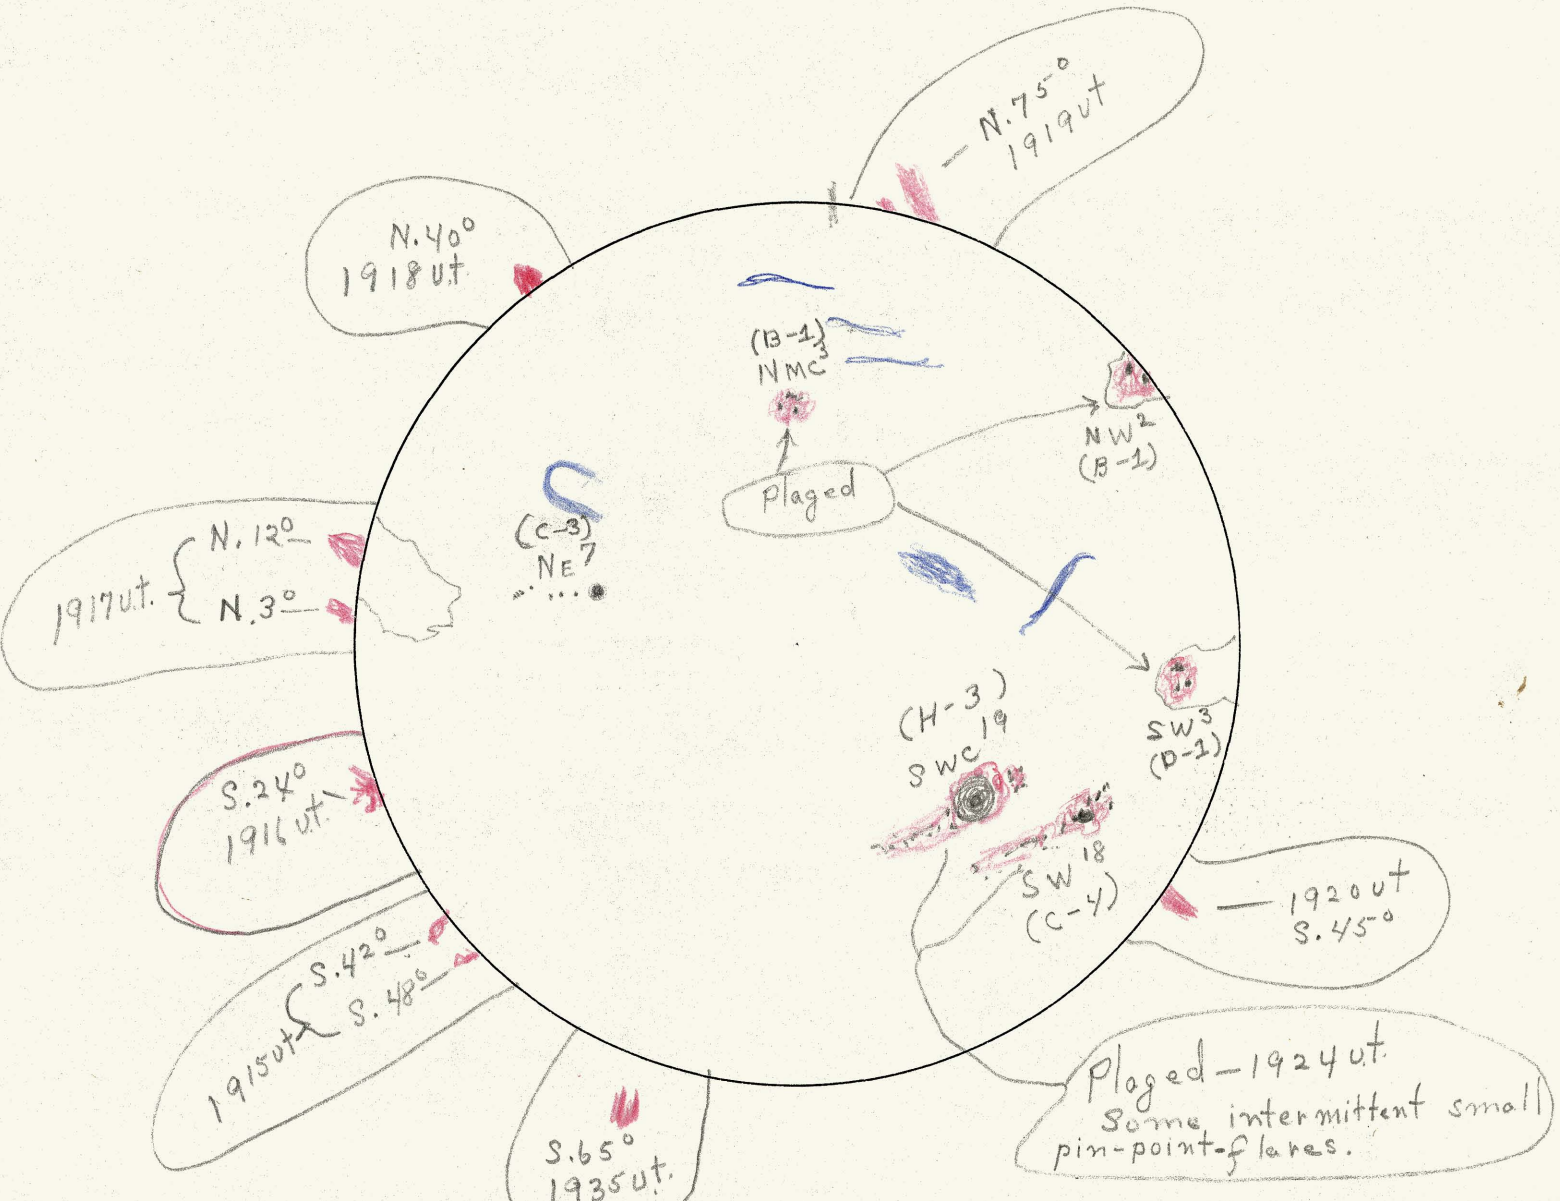 N.75°
1919ut
N.40°
1918ut.
(B-1)
NMC3
NW2
(B-1)
Plaged
(C-3)
NE7
N.12°—
1917ut.
N.3°—
(H-3)
SWC19
SW3
(D-1)
S.24°
1916ut.
SW18
(C-4)
1920ut
S.45°
S.42°—
S.48°—
1915ut
Plaged—1924ut.
Some intermittent small
pin-point-flares.
S.65°
1935ut.